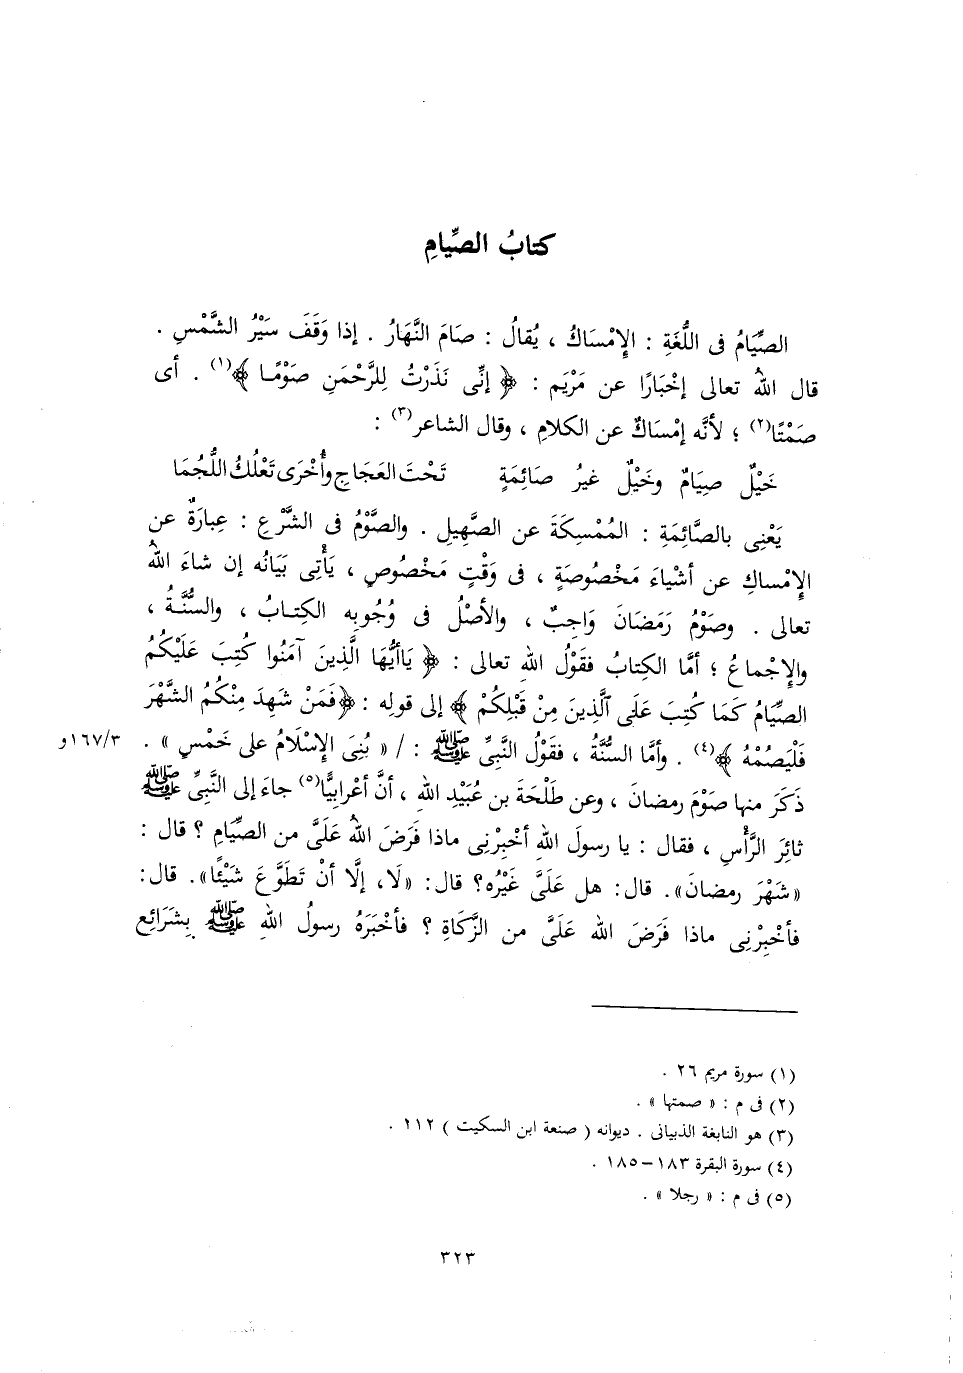 كتابُ الصِّيامِ
الصِّيَامُ فى اللُّغَةِ : الإِمْسَاكُ ، يُقالُ : صَامَ النَّهَارُ . إذا وَقَفَ سَيْرُ الشَّمْسِ .
قال اللهُ تعالى إخْبَارًا عن مَرْيَمَ : ﴿ إنِّى نَذَرْتُ لِلرَّحْمَنِ صَوْمًا ﴾(١) . أى
صَمْتًا(٢) ؛ لأنَّه إمْسَاكٌ عن الكلامِ ، وقال الشاعر(٣) :
خَيْلٌ صِيَامٌ وخَيْلٌ غيرُ صَائِمَةٍ تَحْتَ العَجَاجِ وأُخْرَى تَعْلُكُ اللُّجُمَا
يَعْنِى بالصَّائِمَةِ : المُمْسِكَةَ عن الصَّهِيلِ . والصَّوْمُ فى الشَّرْعِ : عِبارَةٌ عن
الإِمْساكِ عن أشْياءَ مَخْصُوصَةٍ ، فى وَقْتٍ مَخْصُوصٍ ، يَأْتِى بَيَانُه إن شاءَ اللهُ
تعالى . وصَوْمُ رَمَضَانَ وَاجِبٌ ، والأصْلُ فى وُجُوبِه الكِتابُ ، والسُّنَّةُ ،
والإِجْماعُ ؛ أمَّا الكتابُ فقَوْلُ اللهِ تعالى : ﴿ يَاأيُّهَا الَّذِينَ آمَنُوا كُتِبَ عَلَيْكُمُ
الصِّيَامُ كَمَا كُتِبَ عَلَى ٱلَّذِينَ مِنْ قَبْلِكُمْ ﴾ إلى قولِه : ﴿فَمَنْ شَهِدَ مِنْكُمُ الشَّهْرَ
فَلْيَصُمْهُ ﴾(٤) . وأمَّا السُّنَّةُ ، فقَوْلُ النَّبِىِّ ﷺ : / « بُنِىَ الإِسْلَامُ على خَمْسٍ » . ١٦٧/٣و
ذَكَرَ منها صَوْمَ رمضانَ ، وعن طَلْحَةَ بن عُبَيْدِ اللهِ ، أنَّ أعْرابِيًّا(٥) جاءَ إلى النَّبِىِّ ﷺ
ثائِرَ الرَّأْسِ ، فقال : يا رسولَ اللهِ أخْبِرْنِى ماذا فَرَضَ اللهُ عَلَىَّ من الصِّيَامِ ؟ قال :
«شَهْرَ رمضانَ». قال: هل عَلَىَّ غَيْرُه؟ قال: «لَا، إلَّا أنْ تَطَوَّعَ شَيْئًا». قال:
فأخْبِرْنِى ماذا فَرَضَ اللهُ عَلَىَّ من الزَّكَاةِ ؟ فأخْبَرَهُ رسولُ اللهِ ﷺ بِشَرَائِعِ
(١) سورة مريم ٢٦ .
(٢) فى م : « صمتها » .
(٣) هو النابغة الذبيانى . ديوانه ( صنعة ابن السكيت ) ١١٢ .
(٤) سورة البقرة ١٨٣-١٨٥ .
(٥) فى م : « رجلا » .
٣٢٣